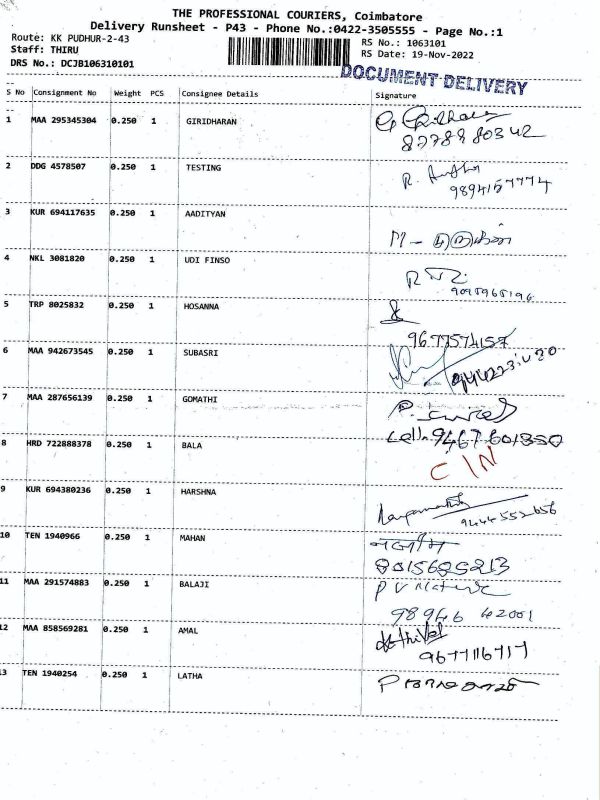 THE PROFESSIONAL COURIERS, Coimbatore
Delivery Runsheet - P43 - Phone No.:0422-3505555 - Page No.:1
Route: KK PUDHUR-2-43
RS No.: 1063101
Staff: THIRU
RS Date: 19-Nov-2022
DRS No.: DCJB106310101
DOCUMENT DELIVERY
S No Consignment No Weight PCS Consignee Details Signature
1 MAA 295345304 0.250 1 GIRIDHARAN
8778980342
2 DDG 4578507 0.250 1 TESTING
9894157774
3 KUR 694117635 0.250 1 AADITYAN
4 NKL 3081820 0.250 1 UDI FINSO
5 TRP 8025832 0.250 1 HOSANNA
9677574157
6 MAA 942673545 0.250 1 SUBASRI
7 MAA 287656139 0.250 1 GOMATHI
Cell. 9467601350
8 HRD 722888378 0.250 1 BALA
C/N
9 KUR 694380236 0.250 1 HARSHNA
9444552656
10 TEN 1940966 0.250 1 MAHAN
8015685213
11 MAA 291574883 0.250 1 BALAJI
98946 42001
12 MAA 858569281 0.250 1 AMAL
9677116717
13 TEN 1940254 0.250 1 LATHA